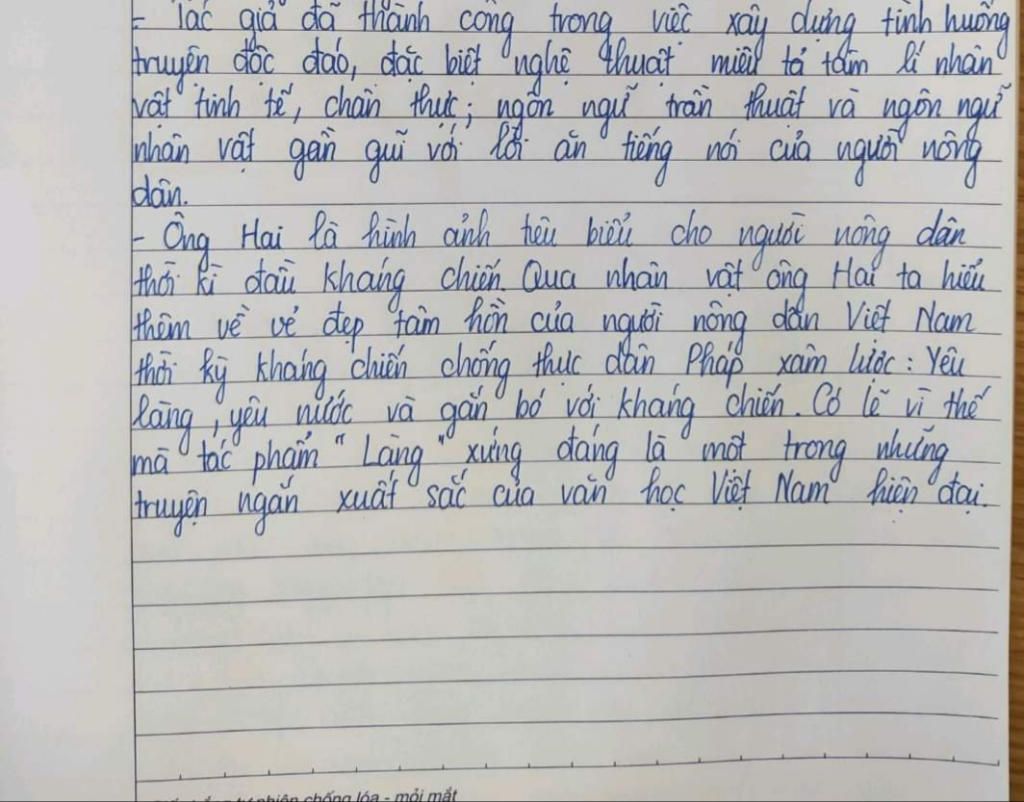 - Tác giả đã thành công trong việc xây dựng tình huống
truyện độc đáo, đặc biệt nghệ thuật miêu tả tâm lí nhân
vật tinh tế, chân thực; ngôn ngữ trần thuật và ngôn ngữ
nhân vật gần gũi với lời ăn tiếng nói của người nông
dân.
- Ông Hai là hình ảnh tiêu biểu cho người nông dân
thời kì đầu kháng chiến. Qua nhân vật ông Hai ta hiểu
thêm về vẻ đẹp tâm hồn của người nông dân Việt Nam
thời kỳ kháng chiến chống thực dân Pháp xâm lược: Yêu
làng, yêu nước và gắn bó với kháng chiến. Có lẽ vì thế
mà tác phẩm "Làng" xứng đáng là một trong những
truyện ngắn xuất sắc của văn học Việt Nam hiện đại.
nhiên chống lóa - mỏi mắt